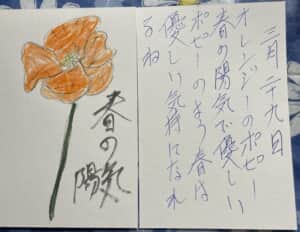 三月二十九日
オレンジーのポピー
春の陽気で優しい
ポピーのよう春は
優しい気持になれ
るね
春の
陽気